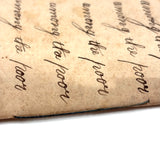 among the poor
among the poor
among the poor
among the poor